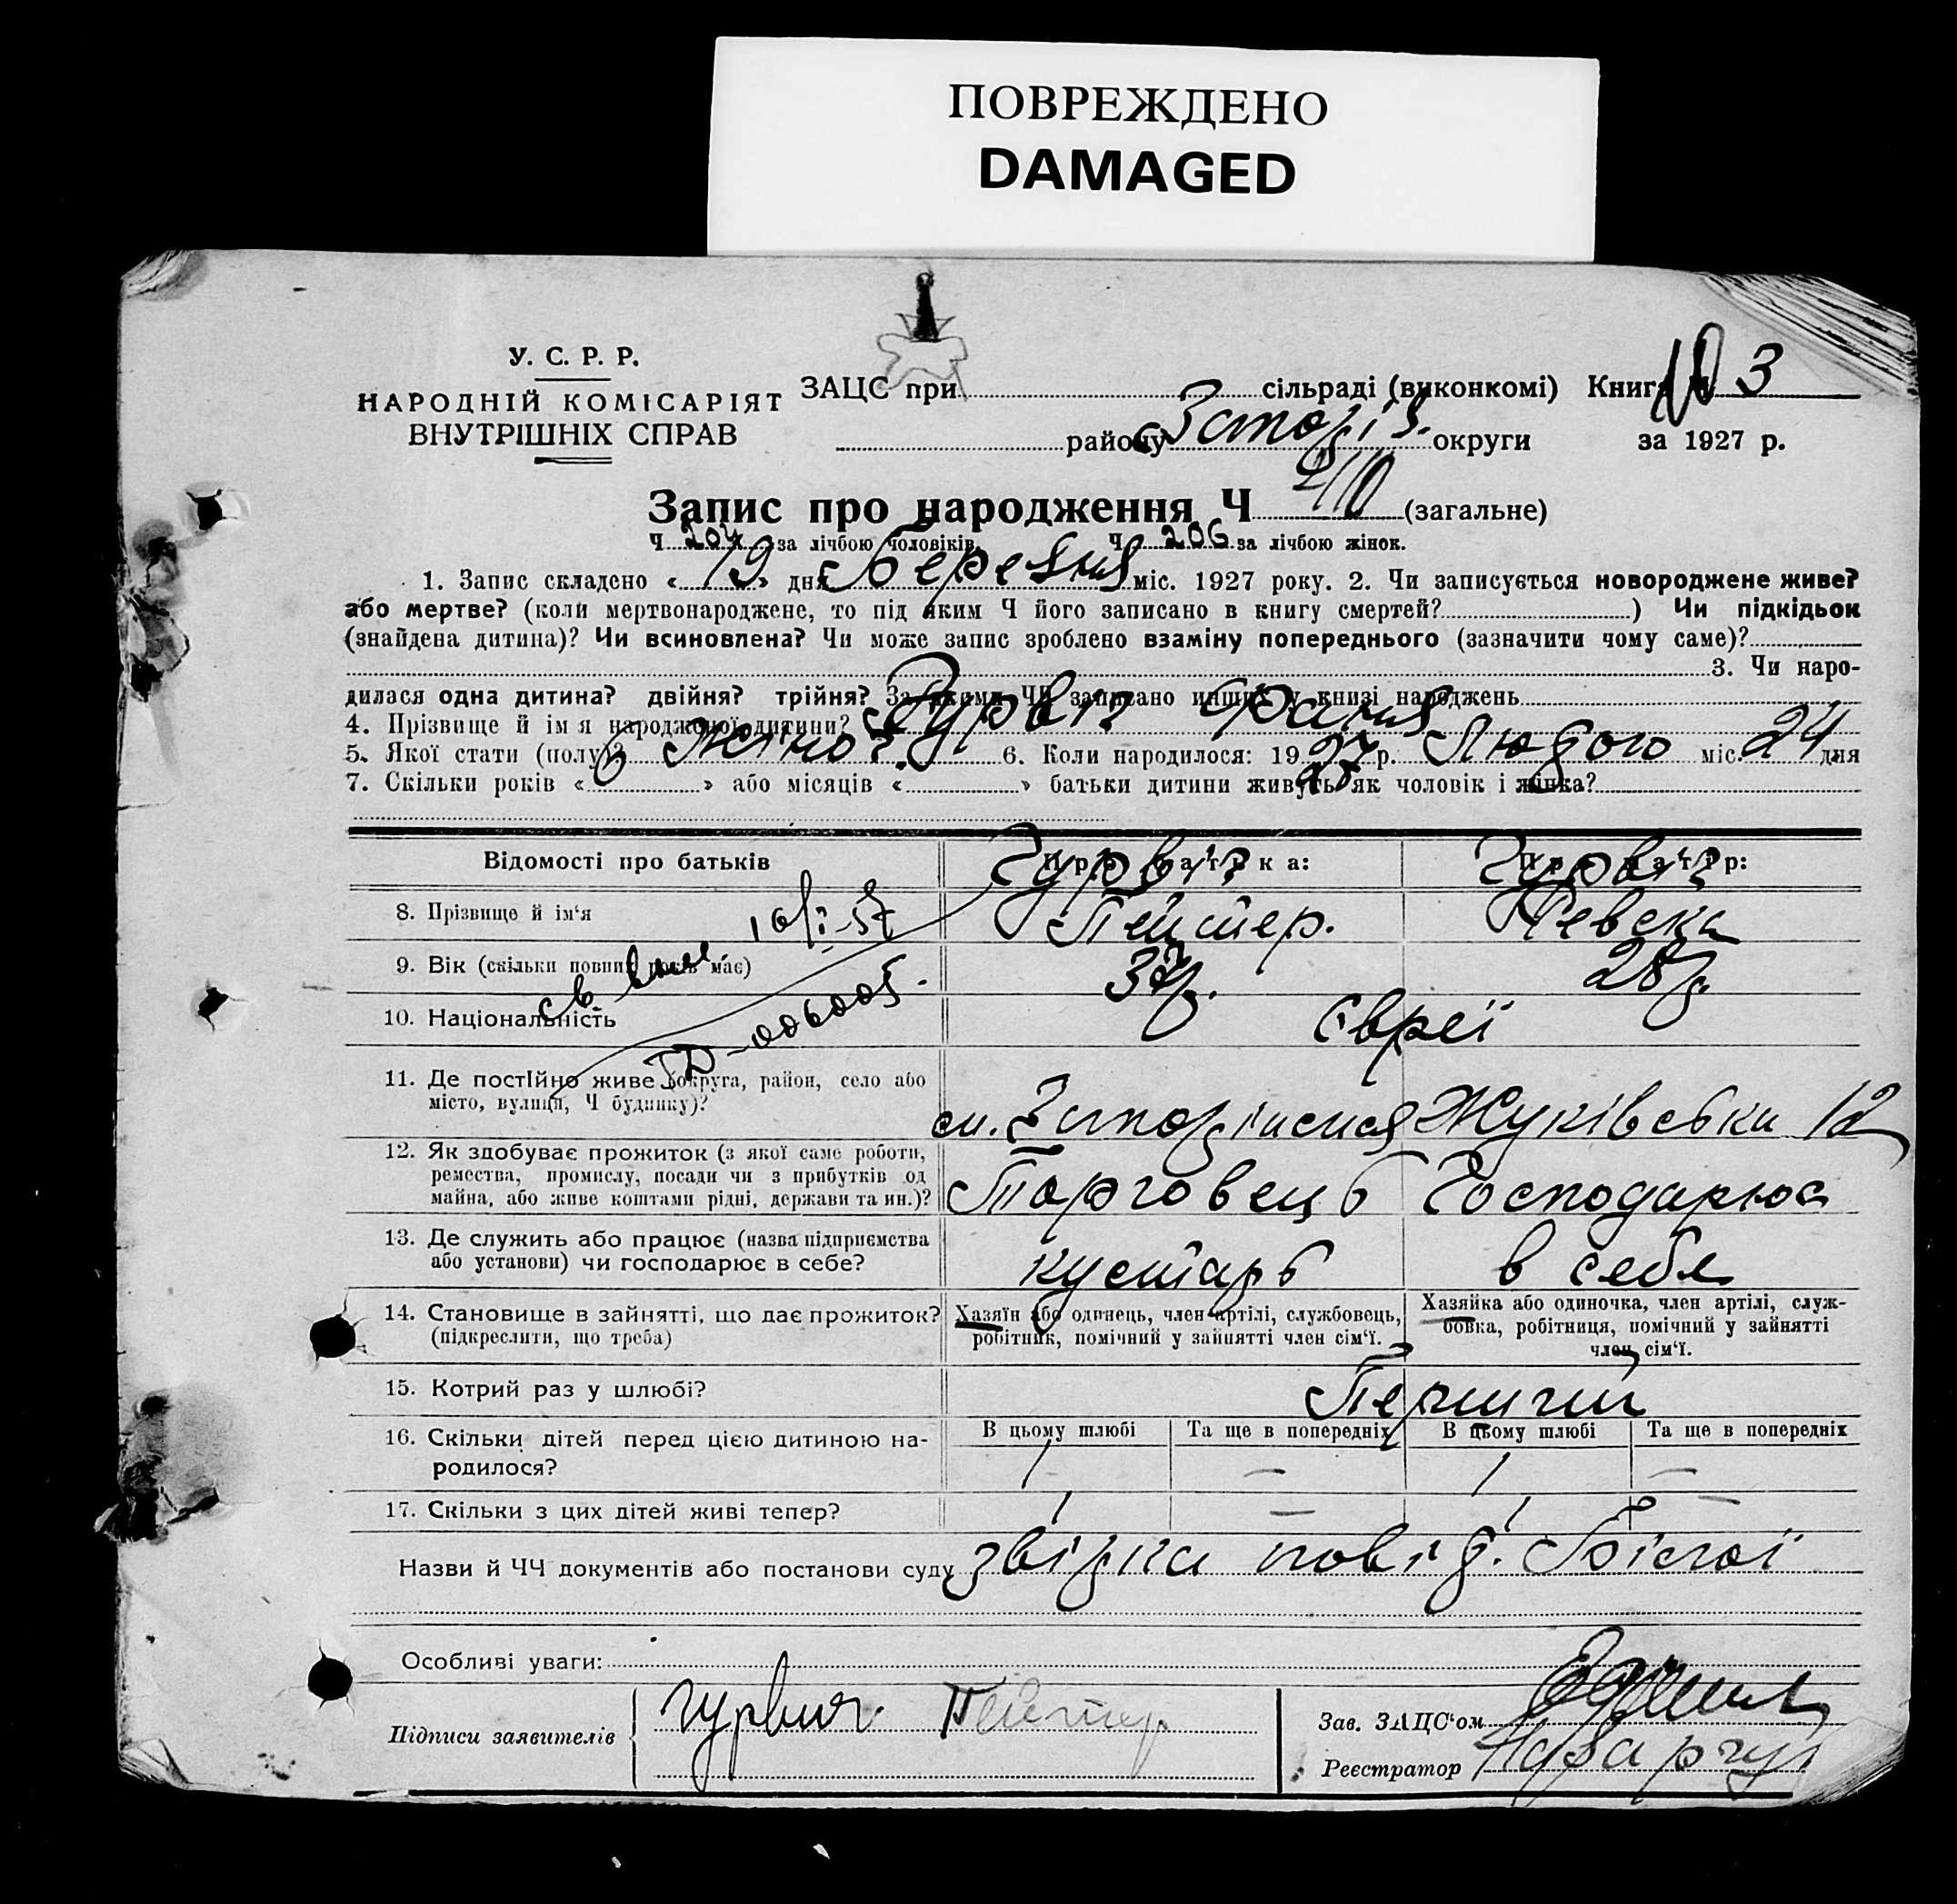 ПОВРЕЖДЕНО
DAMAGED
У. С. Р. Р.
НАРОДНІЙ КОМІСАРІЯТ
ВНУТРІШНІХ СПРАВ
ЗАЦС при сільраді (виконкомі) Книга 3
району округи за 1927 р.
Запис про народження Ч 410 (загальне)
Ч 204 за лічбою чоловіків. Ч 206 за лічбою жінок.
1. Запис складено « 19 » дня Березня міс. 1927 року. 2. Чи записується новороджене живе?
або мертве? (коли мертвонароджене, то під яким Ч його записано в книгу смертей?) Чи підкідьок
(знайдена дитина)? Чи всиновлена? Чи може запис зроблено взаміну попереднього (зазначити чому саме)?
3. Чи наро-
дилася одна дитина? двійня? трійня? За якими ЧЧ записано инших у книзі народжень
4. Прізвище й ім‘я народженої дитини? Гурвіч
5. Якої стати (полу)? Жіноч. 6. Коли народилося: 1927 р. Лютого міс. 24 дня
7. Скільки років « » або місяців « » батьки дитини живуть як чоловік і жінка?
Відомості про батьків
Про батька:
Про матір:
8. Прізвище й ім‘я
Гурвіч Пейтер.
Гурвіч Ревека
16/I-57
9. Вік (скільки повних років має)
37р.
28р.
10. Національність
Євреї
11. Де постійно живе (округа, район, село або
місто, вулиця, Ч будинку)?
Жуківська 12
12. Як здобуває прожиток (з якої саме роботи,
ремества, промислу, посади чи з прибутків од
майна, або живе коштами рідні, держави та ин.)?
Торговець
Господарює
13. Де служить або працює (назва підприємства
або установи) чи господарює в себе?
кустарь
в себе
14. Становище в зайнятті, що дає прожиток?
(підкреслити, що треба)
Хазяїн або одинець, член артілі, службовець,
робітник, помічний у зайнятті член сім‘ї.
Хазяйка або одиночка, член артілі, служ-
бовка, робітниця, помічний у зайнятті
член сім‘ї.
15. Котрий раз у шлюбі?
Перший
16. Скільки дітей перед цією дитиною на-
родилося?
В цьому шлюбі Та ще в попередніх В цьому шлюбі Та ще в попередніх
1 — 1 —
17. Скільки з цих дітей живі тепер?
1 — 1 —
Назви й ЧЧ документів або постанови суду
Особливі уваги:
Підписи заявителів
Гурвич Пейтер
Зав. ЗАЦС‘ом
Реєстратор